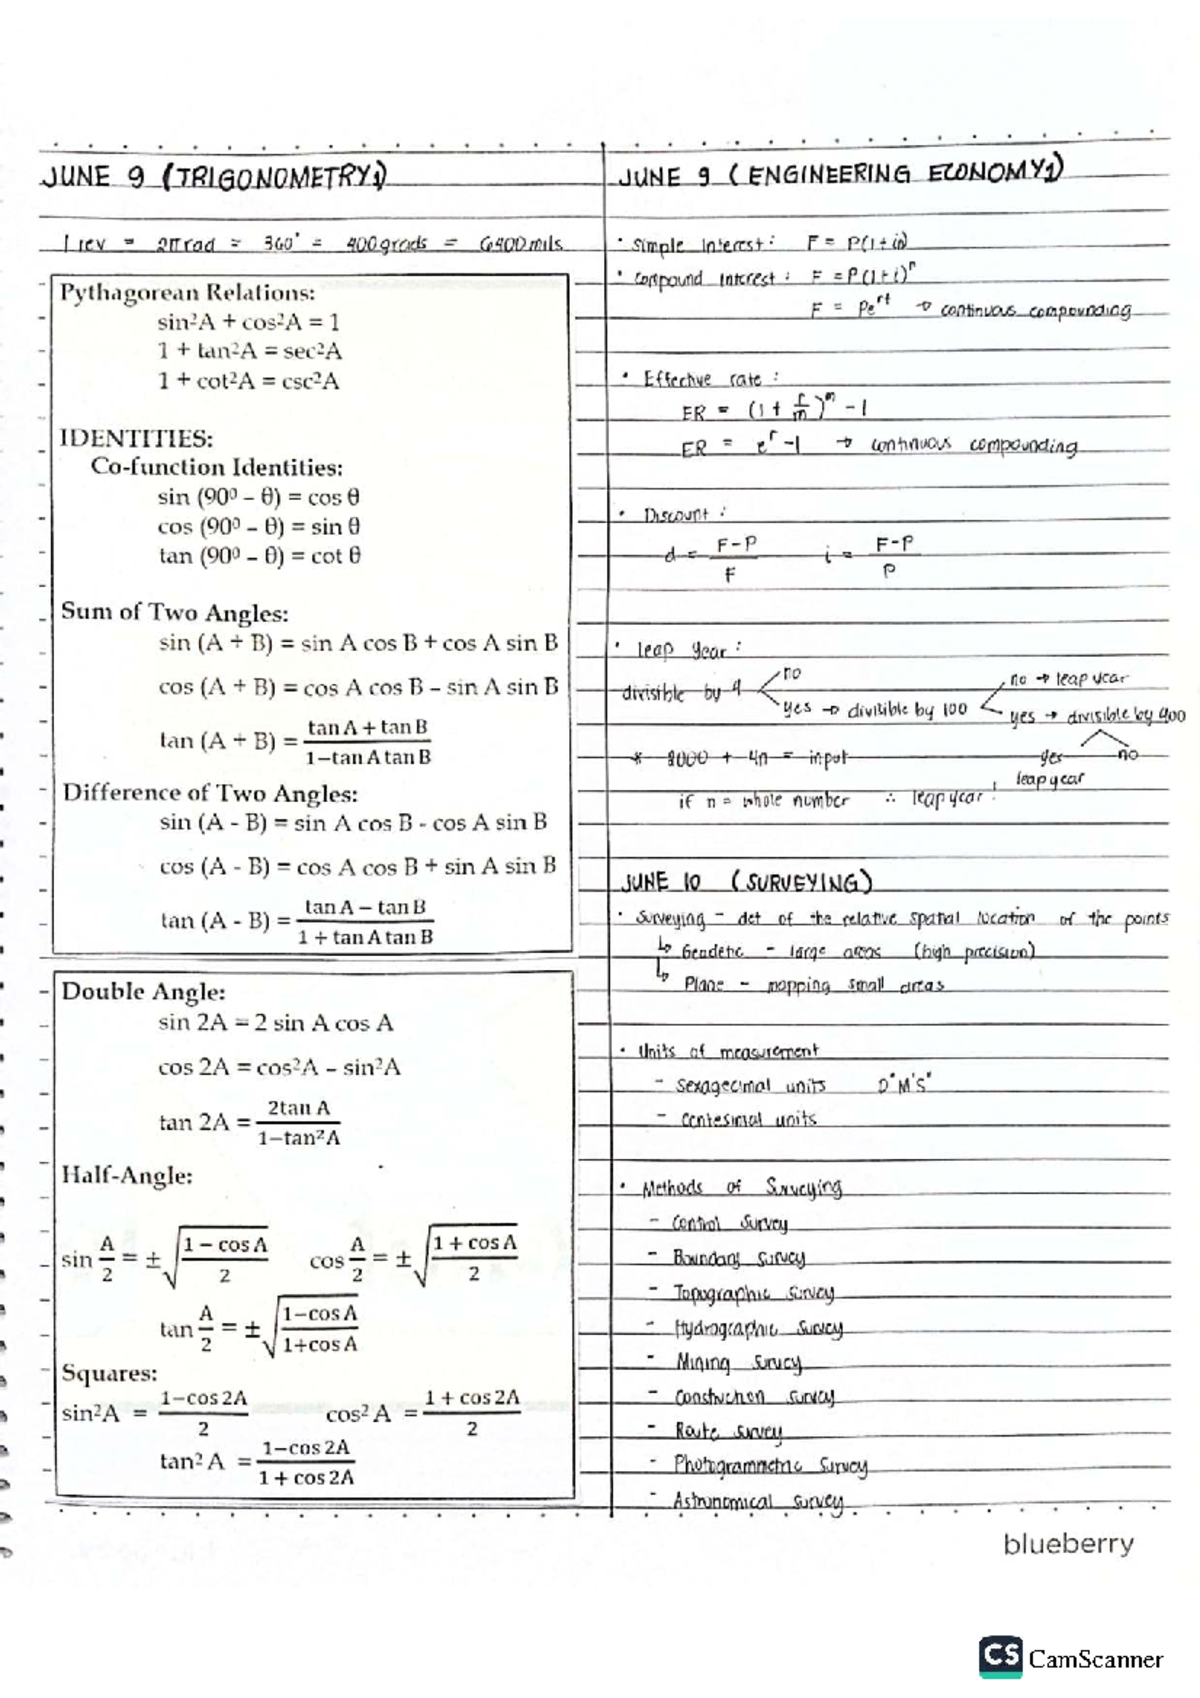 JUNE 9 (TRIGONOMETRY1)
1 rev = 2π rad = 360° = 400 grads = 6400 mils
Pythagorean Relations:
sin²A + cos²A = 1
1 + tan²A = sec²A
1 + cot²A = csc²A
IDENTITIES:
Co-function Identities:
sin (90⁰ – θ) = cos θ
cos (90⁰ – θ) = sin θ
tan (90⁰ – θ) = cot θ
Sum of Two Angles:
sin (A + B) = sin A cos B + cos A sin B
cos (A + B) = cos A cos B – sin A sin B
tan (A + B) = (tan A + tan B)/(1–tan A tan B)
Difference of Two Angles:
sin (A - B) = sin A cos B - cos A sin B
cos (A - B) = cos A cos B + sin A sin B
tan (A - B) = (tan A – tan B)/(1 + tan A tan B)
Double Angle:
sin 2A = 2 sin A cos A
cos 2A = cos²A – sin²A
tan 2A = (2tan A)/(1–tan²A)
Half-Angle:
sin A/2 = ± √((1 – cos A)/2) cos A/2 = ± √((1 + cos A)/2)
tan A/2 = ± √((1–cos A)/(1+cos A))
Squares:
sin²A = (1–cos 2A)/2 cos² A = (1 + cos 2A)/2
tan² A = (1–cos 2A)/(1 + cos 2A)
JUNE 9 (ENGINEERING ECONOMY1)
• Simple Interest: F = P(1 + in)
• Compound Interest: F = P(1+i)ⁿ
F = Pe^rt → continuous compounding
• Effective rate:
ER = (1 + r/m)^m - 1
ER = e^r - 1 → continuous compounding
• Discount:
d = (F-P)/F i = (F-P)/P
• leap year:
divisible by 4
no
yes → divisible by 100
no → leap year
yes → divisible by 400
yes no
leap year
* 2000 + 4n = input
if n = whole number ∴ leap year!
JUNE 10 (SURVEYING)
• Surveying - det of the relative spatial location of the points
↳ Geodetic - large areas (high precision)
↳ Plane - mapping small areas
• Units of measurement
- Sexagecimal units D°M'S"
- Centesimal units
• Methods of Surveying
- Control Survey
- Boundary Survey
- Topographic Survey
- Hydrographic Survey
- Mining Survey
- Construction Survey
- Route Survey
- Photogrammetric Survey
- Astronomical Survey
blueberry
CS CamScanner